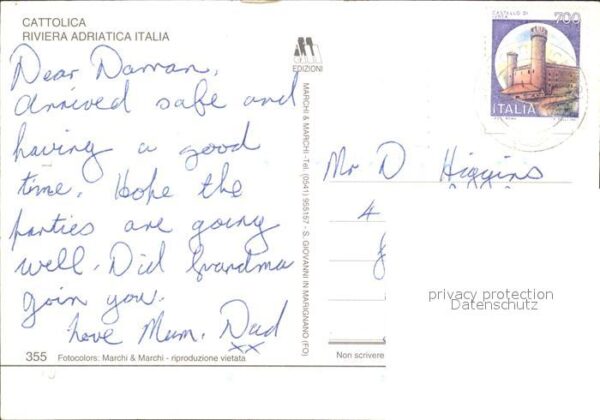 CATTOLICA
RIVIERA ADRIATICA ITALIA
Dear Darran,
arrived safe and
having a good
time. Hope the
parties are going
well. Did Grandma
join you.
Love Mum. Dad
xx
355 Fotocolors: Marchi & Marchi - riproduzione vietata.
EDIZIONI
MARCHI & MARCHI - Tel. (0541) 955157 - S. GIOVANNI IN MARIGNANO (FO)
CASTELLO DI
IVREA
700
ITALIA
Mr D Higgins
4
privacy protection
Datenschutz
Non scrivere